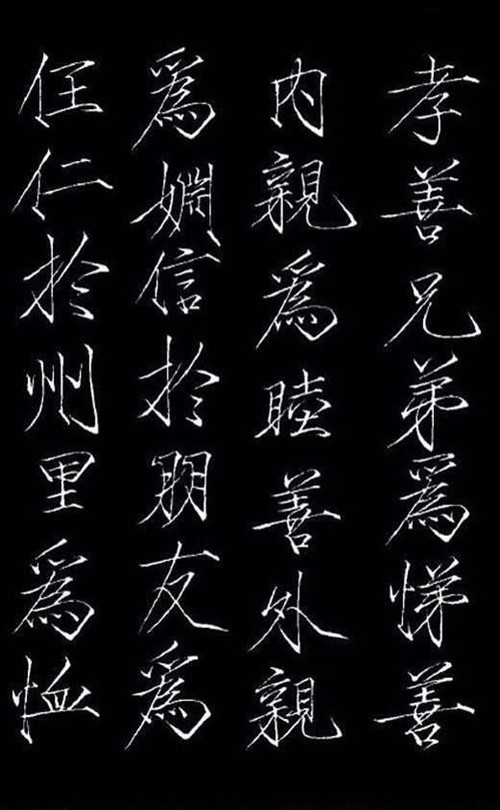 孝善兄弟爲悌善
内親爲睦善外親
爲婣信於朋友爲
任仁於州里爲恤